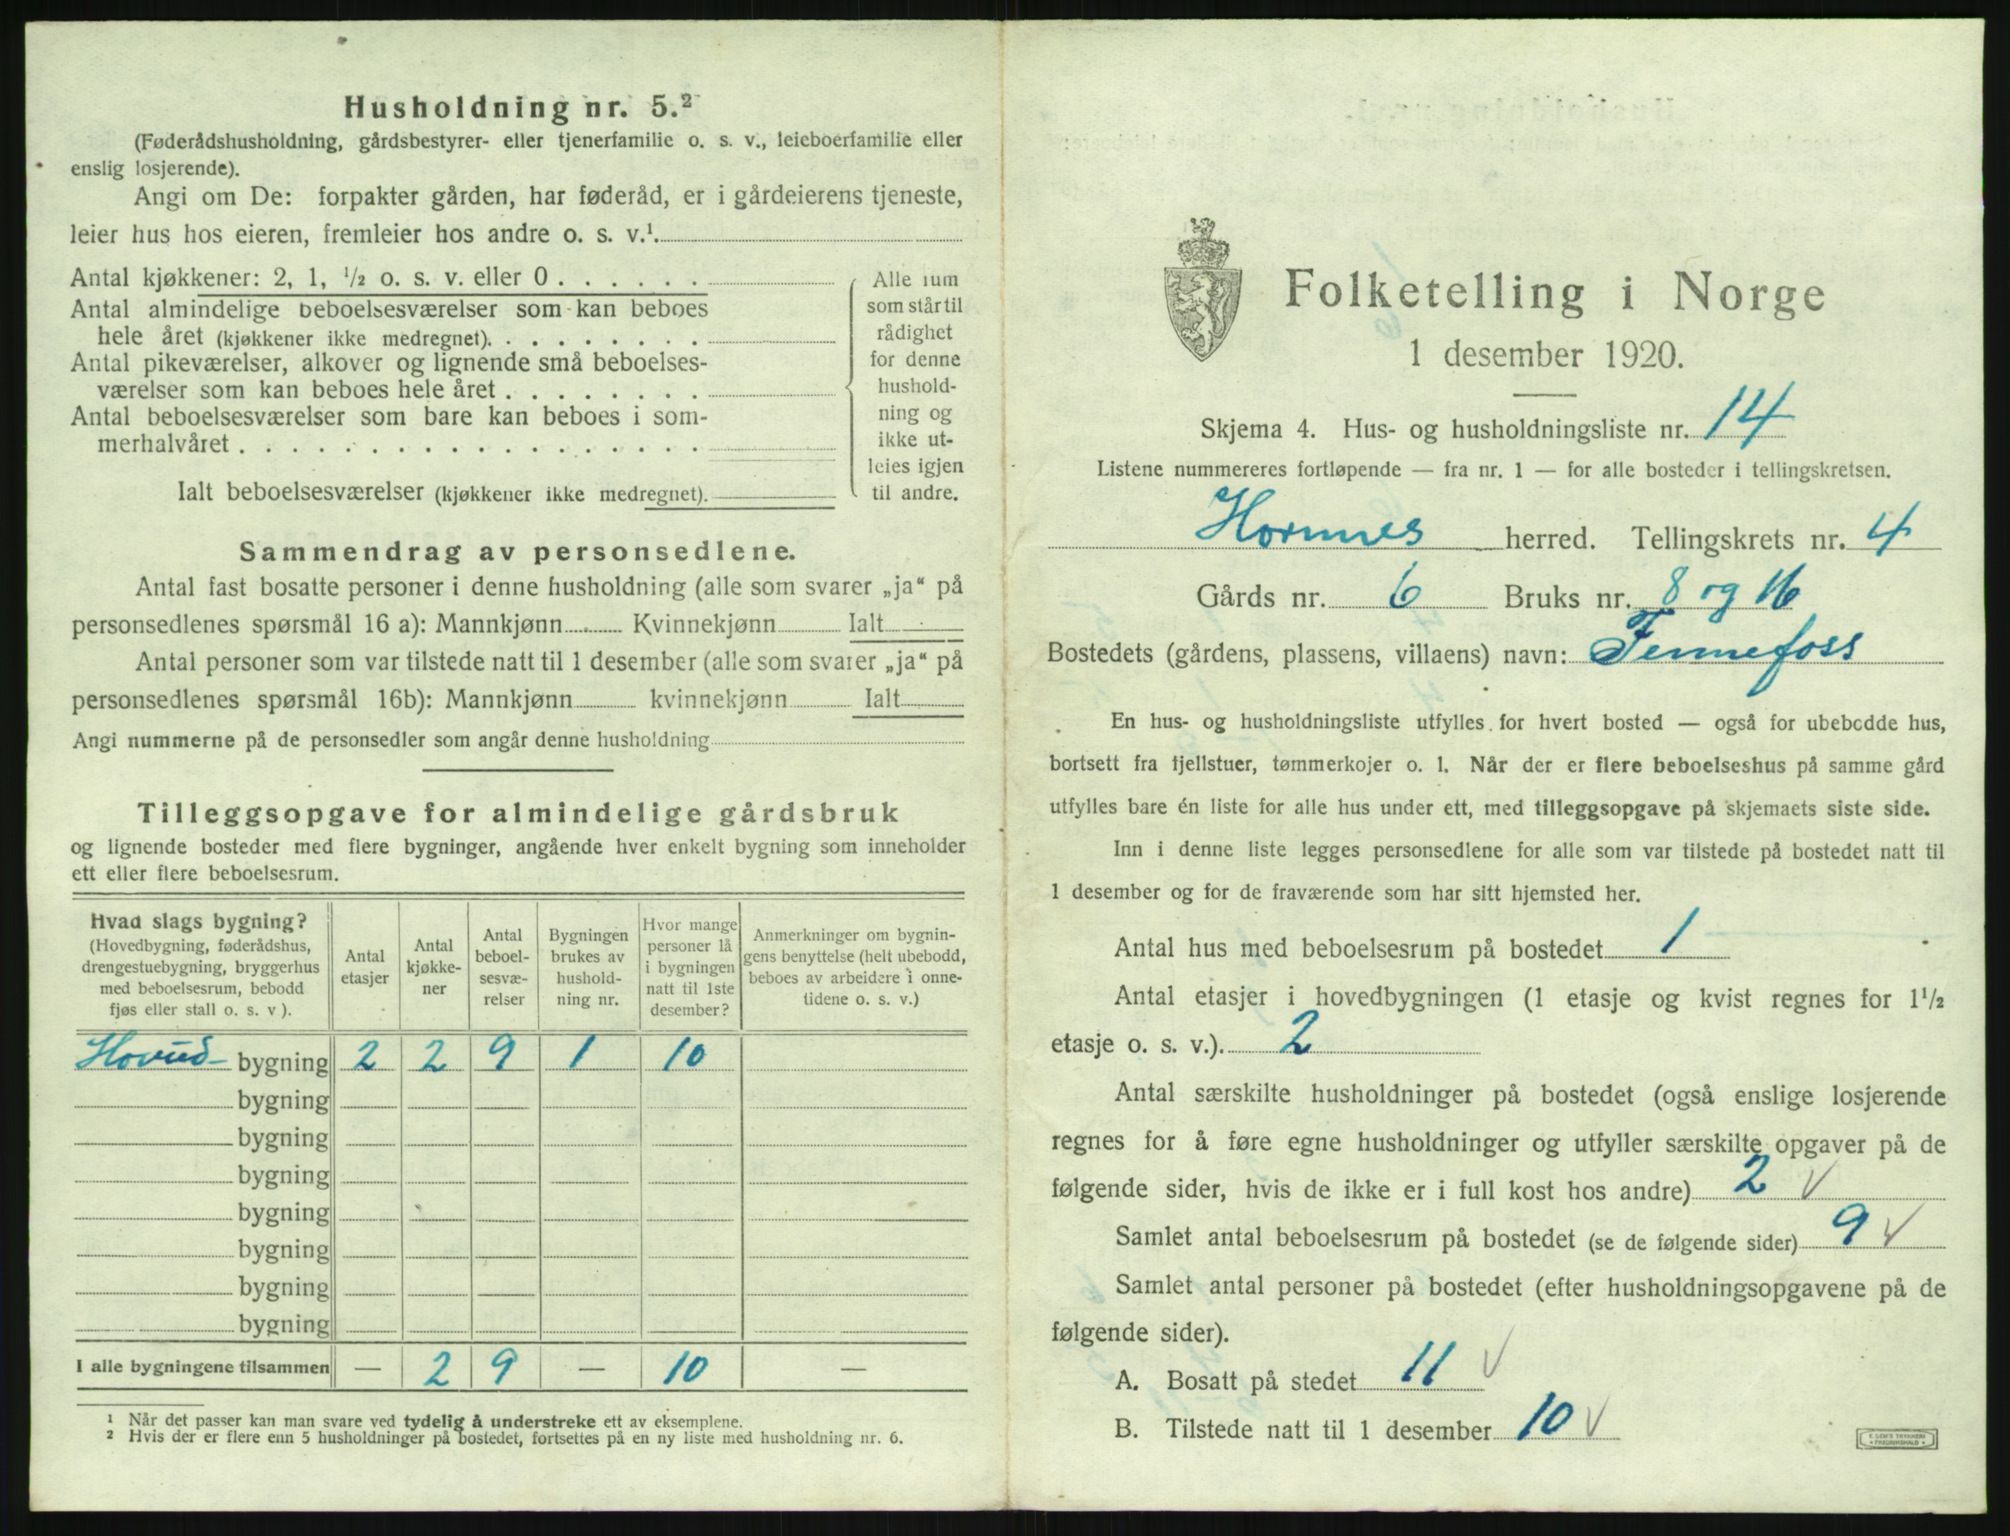 Husholdning nr. 5.²
(Føderådshusholdning, gårdsbestyrer- eller tjenerfamilie o. s. v., leieboerfamilie eller
enslig losjerende).
Angi om De: forpakter gården, har føderåd, er i gårdeierens tjeneste,
leier hus hos eieren, fremleier hos andre o. s. v.¹.
Antal kjøkkener: 2, 1, ½ o. s. v. eller 0 . . . . . .
Antal almindelige beboelsesværelser som kan beboes
hele året (kjøkkener ikke medregnet). . . . . . . . .
Antal pikeværelser, alkover og lignende små beboelses-
værelser som kan beboes hele året . . . . . . . .
Antal beboelsesværelser som bare kan beboes i som-
merhalvåret . . . . . . . . . . . . . . . . . .
Ialt beboelsesværelser (kjøkkener ikke medregnet).
Alle rum
som står til
rådighet
for denne
hushold-
ning og
ikke ut-
leies igjen
til andre.
Sammendrag av personsedlene.
Antal fast bosatte personer i denne husholdning (alle som svarer „ja“ på
personsedlenes spørsmål 16 a): Mannkjønn Kvinnekjønn Ialt
Antal personer som var tilstede natt til 1 desember (alle som svarer „ja“ på
personsedlenes spørsmål 16b): Mannkjønn kvinnekjønn Ialt
Angi nummerne på de personsedler som angår denne husholdning
Tilleggsopgave for almindelige gårdsbruk
og lignende bosteder med flere bygninger, angående hver enkelt bygning som inneholder
ett eller flere beboelsesrum.
Hvad slags bygning?
(Hovedbygning, føderådshus,
drengestuebygning, bryggerhus
med beboelsesrum, bebodd
fjøs eller stall o. s. v ).
Antal
etasjer
Antal
kjøkke-
ner
Antal
beboel-
sesvæ-
relser
Bygningen
brukes av
hushold-
ning nr.
Hvor mange
personer lå
i bygningen
natt til 1ste
desember?
Anmerkninger om bygnin-
gens benyttelse (helt ubebodd,
beboes av arbeidere i onne-
tidene o. s. v.)
Hovud- bygning 2 2 9 1 10
bygning
bygning
bygning
bygning
bygning
bygning
bygning
I alle bygningene tilsammen — 2 9 — 10 —
¹ Når det passer kan man svare ved tydelig å understreke ett av eksemplene.
² Hvis der er flere enn 5 husholdninger på bostedet, fortsettes på en ny liste med husholdning nr. 6.
Folketelling i Norge
1 desember 1920.
Skjema 4. Hus- og husholdningsliste nr. 14
Listene nummereres fortløpende — fra nr. 1 — for alle bosteder i tellingskretsen.
Hornnes herred. Tellingskrets nr. 4
Gårds nr. 6 Bruks nr. 8 og 16
Bostedets (gårdens, plassens, villaens) navn: Fennefoss
En hus- og husholdningsliste utfylles for hvert bosted — også for ubebodde hus,
bortsett fra fjellstuer, tømmerkojer o. l. Når der er flere beboelseshus på samme gård
utfylles bare én liste for alle hus under ett, med tilleggsopgave på skjemaets siste side.
Inn i denne liste legges personsedlene for alle som var tilstede på bostedet natt til
1 desember og for de fraværende som har sitt hjemsted her.
Antal hus med beboelsesrum på bostedet 1
Antal etasjer i hovedbygningen (1 etasje og kvist regnes for 1½
etasje o. s. v.). 2
Antal særskilte husholdninger på bostedet (også enslige losjerende
regnes for å føre egne husholdninger og utfyller særskilte opgaver på de
følgende sider, hvis de ikke er i full kost hos andre) 2 ✓
Samlet antal beboelsesrum på bostedet (se de følgende sider) 9 ✓
Samlet antal personer på bostedet (efter husholdningsopgavene på de
følgende sider).
A. Bosatt på stedet 11 ✓
B. Tilstede natt til 1 desember 10 ✓